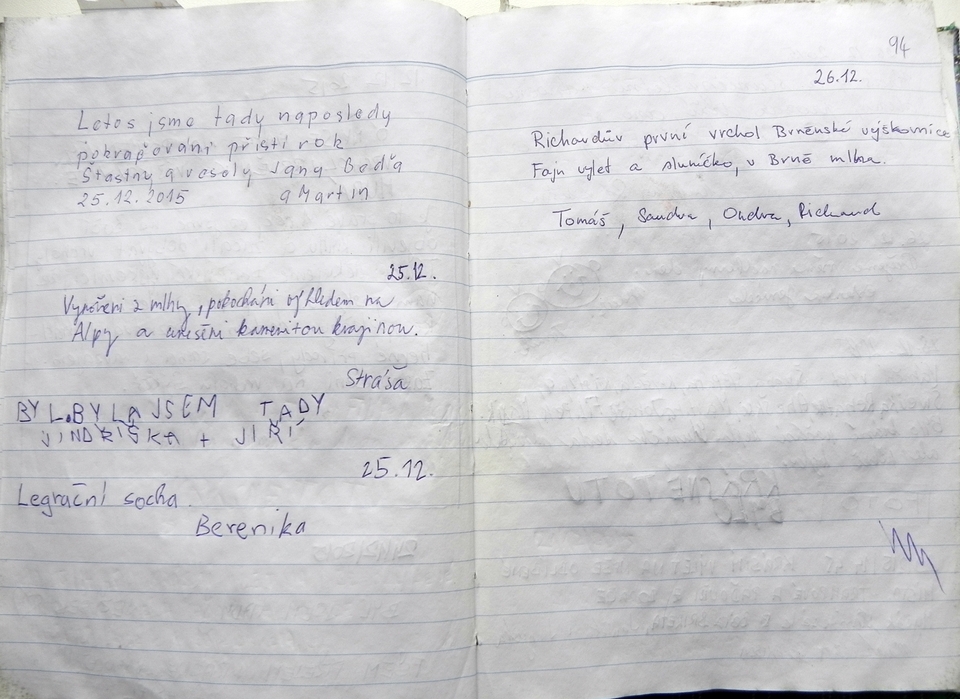 Letos jsme tady naposledy
pokračování příští rok
Šťastný a veselý Jany Beďa
25.12.2015 a Martin
25.12.
Vynoření z mlhy, pokochání výhledem na
Alpy a unešení kamenitou krajinou.
Stráša
BYL.BYLA JSEM TADY
JINDRIŠKA + JIŘÍ
25.12.
Legrační socha
Berenika
94
26.12.
Richardův první vrchol Brněnské výškovnice
Fajn výlet a sluníčko, v Brně mlha.
Tomáš, Sandra, Ondra, Richard